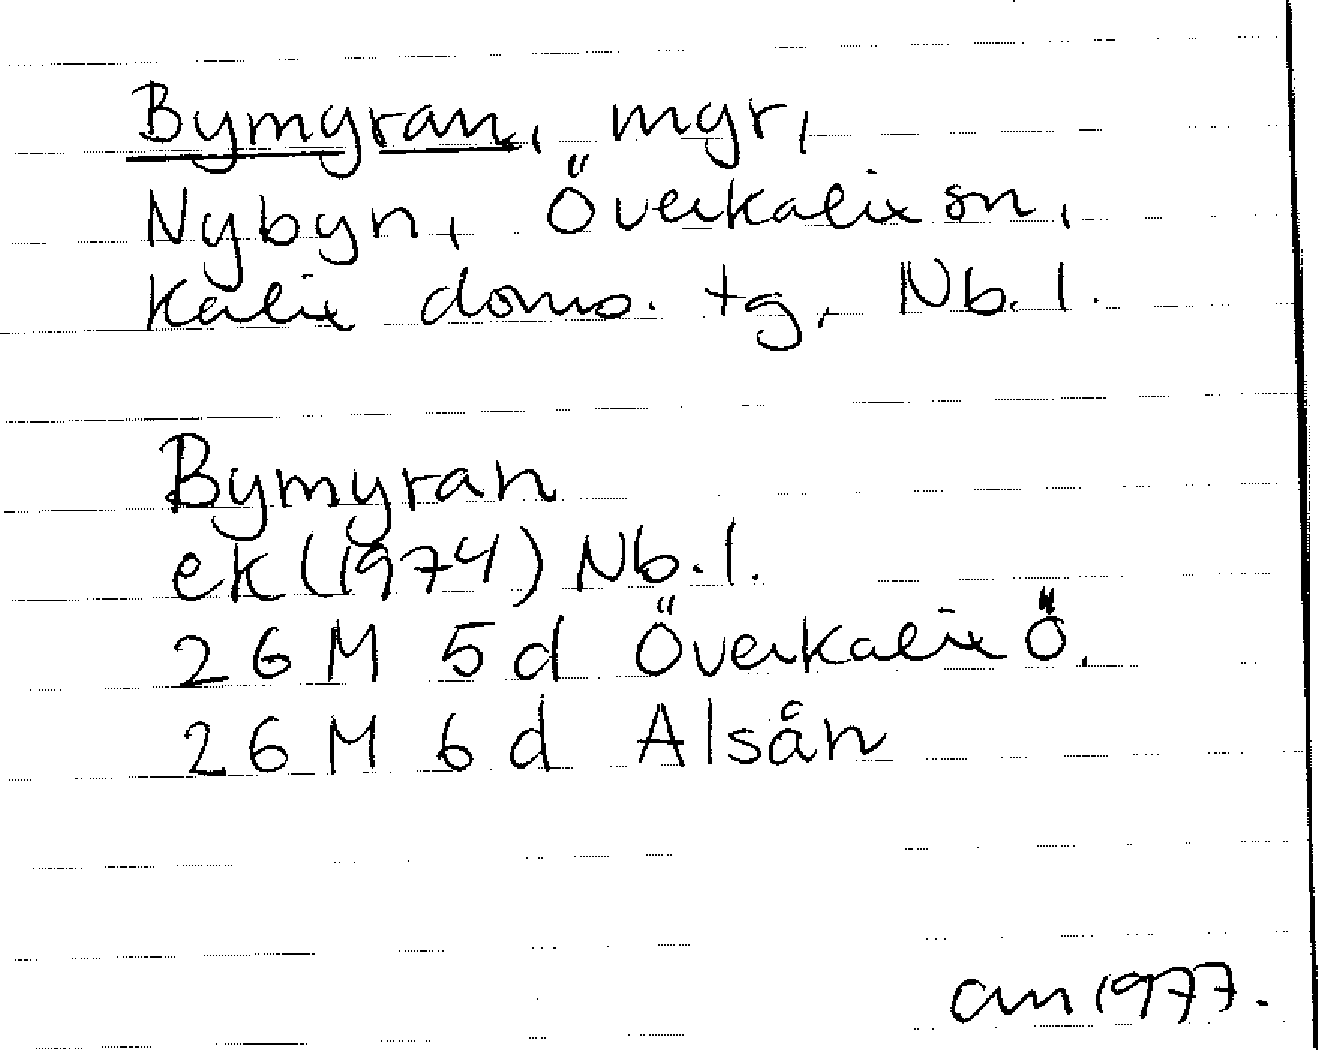 Bymyran, myr,
Nybyn, Överkalix sn,
Kalix doms. tg, Nb. l.
Bymyran
ek (1974) Nb. l.
26 M 5 d Överkalix Ö.
26 M 6 d Alsån
am 1977.